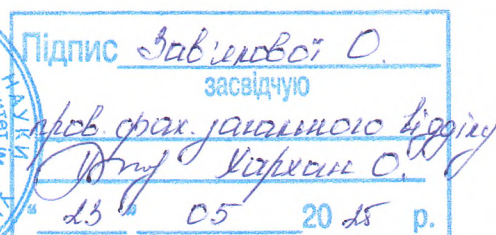 Підпис Зав'ялової О.
засвідчую
пров. фах. загального відділу
Хархан О.
"23" 05 2025 р.
НАУКИ